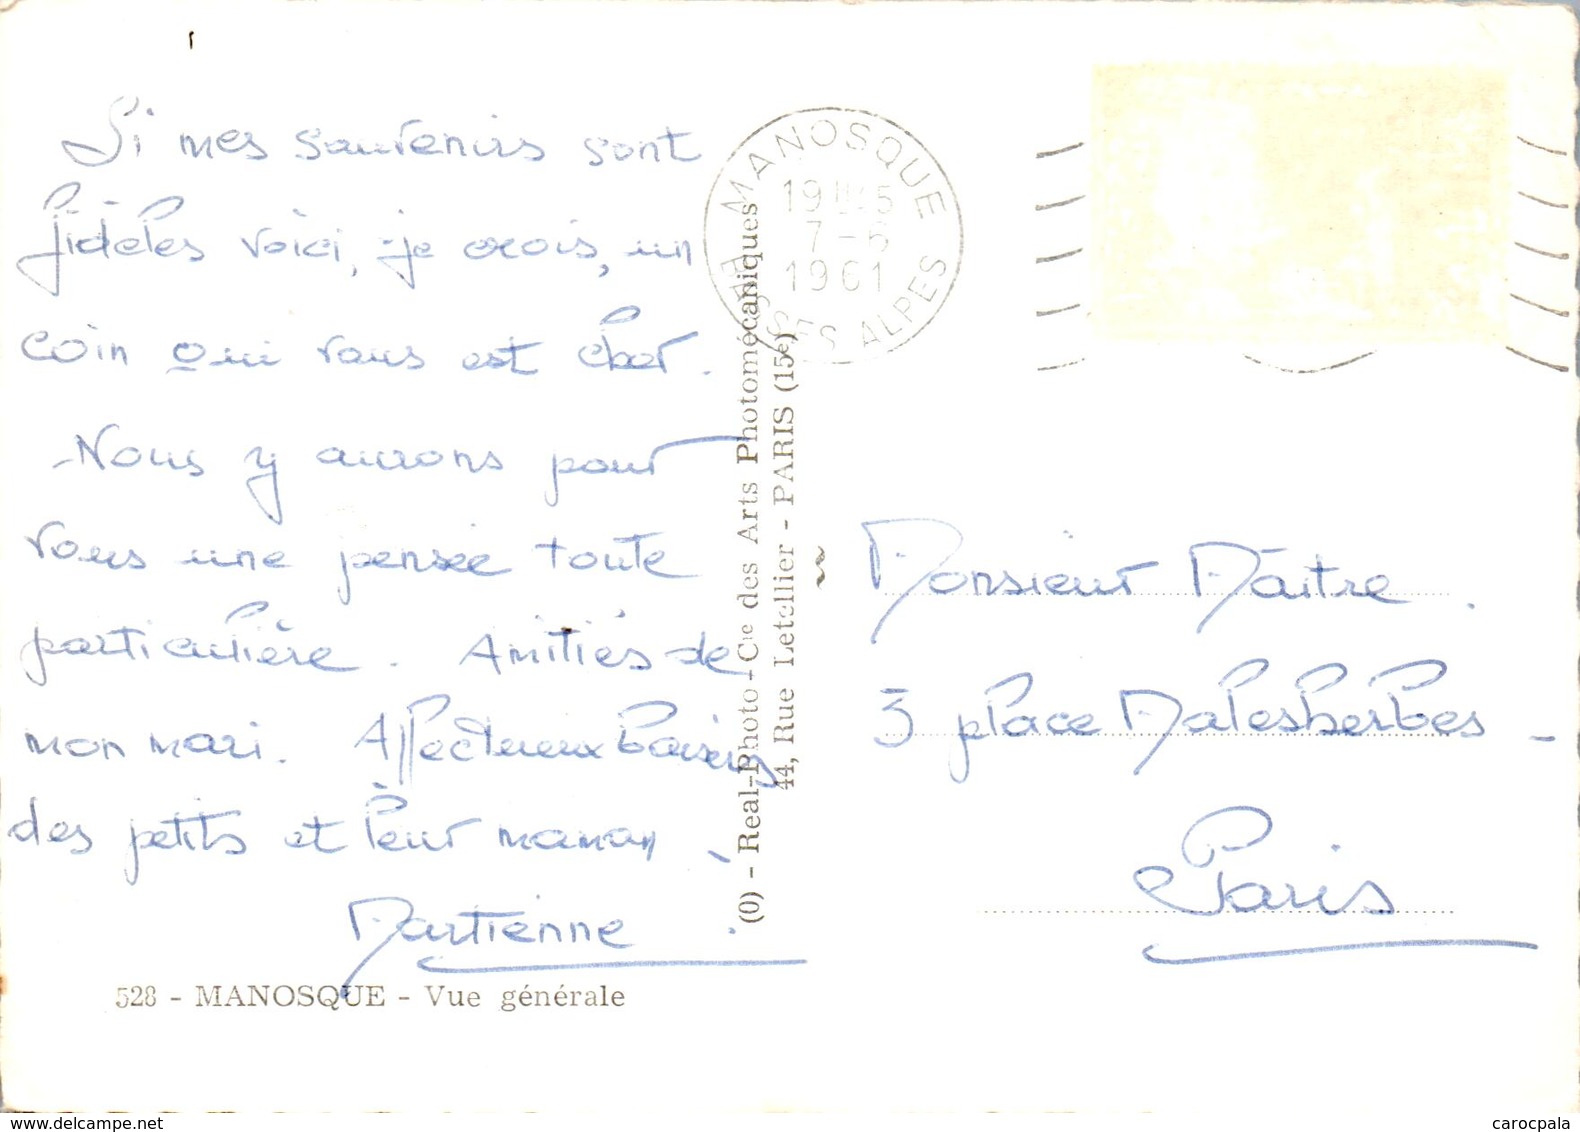 Si mes souvenirs sont
fidèles voici, je crois, un
coin qui vous est cher.
Nous y aurons pour
vous une pensée toute
particulière. Amitiés de
mon mari. Affectueux baisers
des petits et leur maman -
Martienne.
528 - MANOSQUE - Vue générale
(0) - Real-Photo - Cie des Arts Photomécaniques
44, Rue Letellier - PARIS (15e)
MANOSQUE
7-5
1961
BASSES ALPES
Monsieur Maître.
3 place Malesherbes -
Paris
www.delcampe.net
carocpala